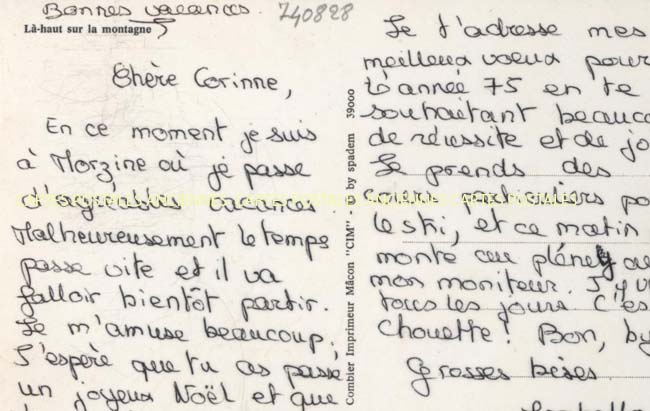 Bonnes vacances
740828
Là-haut sur la montagne
Chère Corinne,
En ce moment je suis
à Morzine où je passe
d'agréables vacances
Malheureusement le temps
passe vite et il va
falloir bientôt partir.
Je m'amuse beaucoup.
J'espère que tu as passé
un joyeux Noël et que
Combier Imprimeur Mâcon "CIM" - © by spadem 39000
Je t'adresse mes
meilleurs voeux pour
l'année 75 en te
souhaitant beauco
de réussite et de jo
Je prends des
cours particuliers po
le ski, et ce matin
monte au pléney av
mon moniteur. J'y v
tous les jours c'es
chouette! Bon, by
Grosses bises